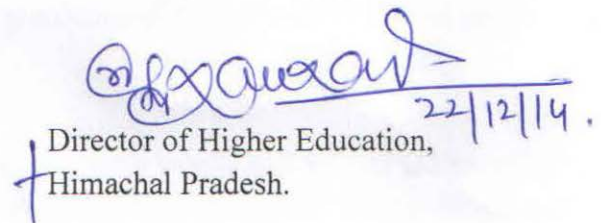 22/12/14.
Director of Higher Education,
Himachal Pradesh.